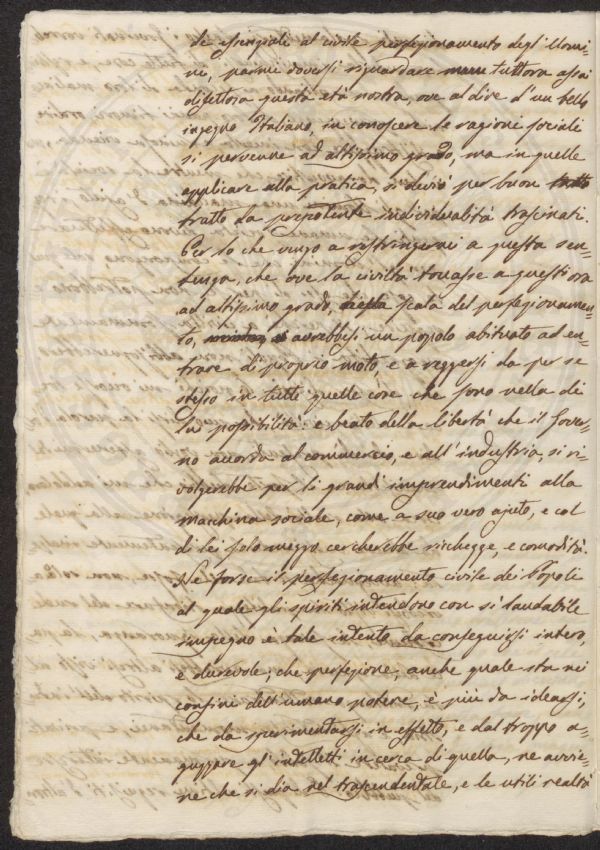 de essenziali al civile perfezionamento degli Uomi=
ni, parmi doversi riguardare tuttora assai
difettosa questa età nostra, ove al dire d'un bello
ingegno Italiano, in conoscere le ragioni sociali
si pervenne ad altissimo grado, ma in quelle
applicare alla pratica, si deviò per buon tratto
tratto da prepotente individualità trascinati.
Per lo che vengo a restringermi a questa sen=
tenza, che ove la civiltà toccasse a quest'ora
ad altissimo grado, scala del perfezionamen=
to, avrebbesi un popolo abituato ad en=
trare di proprio moto e a reggersi da per se
stesso in tutte quelle cose che sono nella di
lui possibilità: e beato della libertà che il Gover=
no accorda al commercio, e all'industria, si ri=
volgerebbe per li grandi imprendimenti alla
macchina sociale, come a suo vero ajuto, e col
di lei solo mezzo cercherebbe ricchezze, e comodità.
Ne forse il perfezionamento civile dei Popoli
al quale gli spiriti intendono con sì laudabile
impegno è tale intento da conseguirsi intero,
e durevole; che perfezione, anche quale sta nei
confini dell'umano potere, è più da idearsi,
che da sperimentarsi in effetto, e dal troppo a=
guzzare gl'intelletti in cerca di quella, ne avvie=
ne che si dia nel trascendentale, e le utili realtà